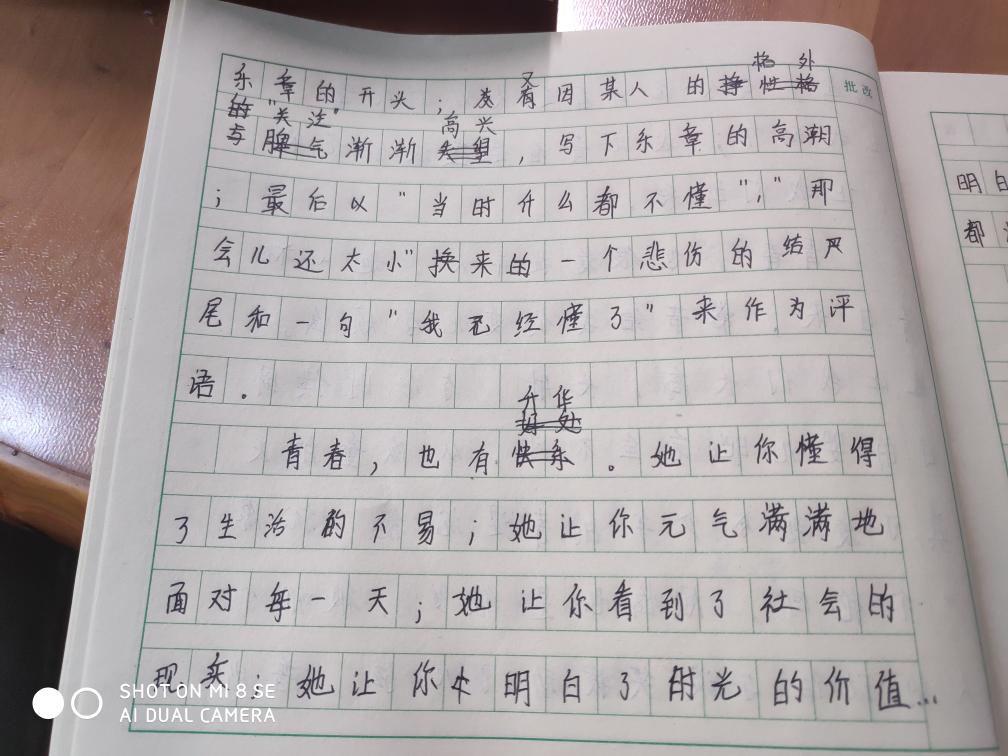 格外
乐章的开头；发又有因某人的挣性格
批改
的"关注"
高兴
与脾气渐渐失望，写下乐章的高潮
；最后以"当时什么都不懂"，"那
会儿还太小"换来的一个悲伤的结尾
尾和一句"我已经懂了"来作为评
语。
升华
好处
青春，也有快乐。她让你懂得
了生活的不易；她让你元气满满地
面对每一天；她让你看到了社会的
现实；她让你明白了时光的价值…
明白
都
SHOT ON MI 8 SE
AI DUAL CAMERA